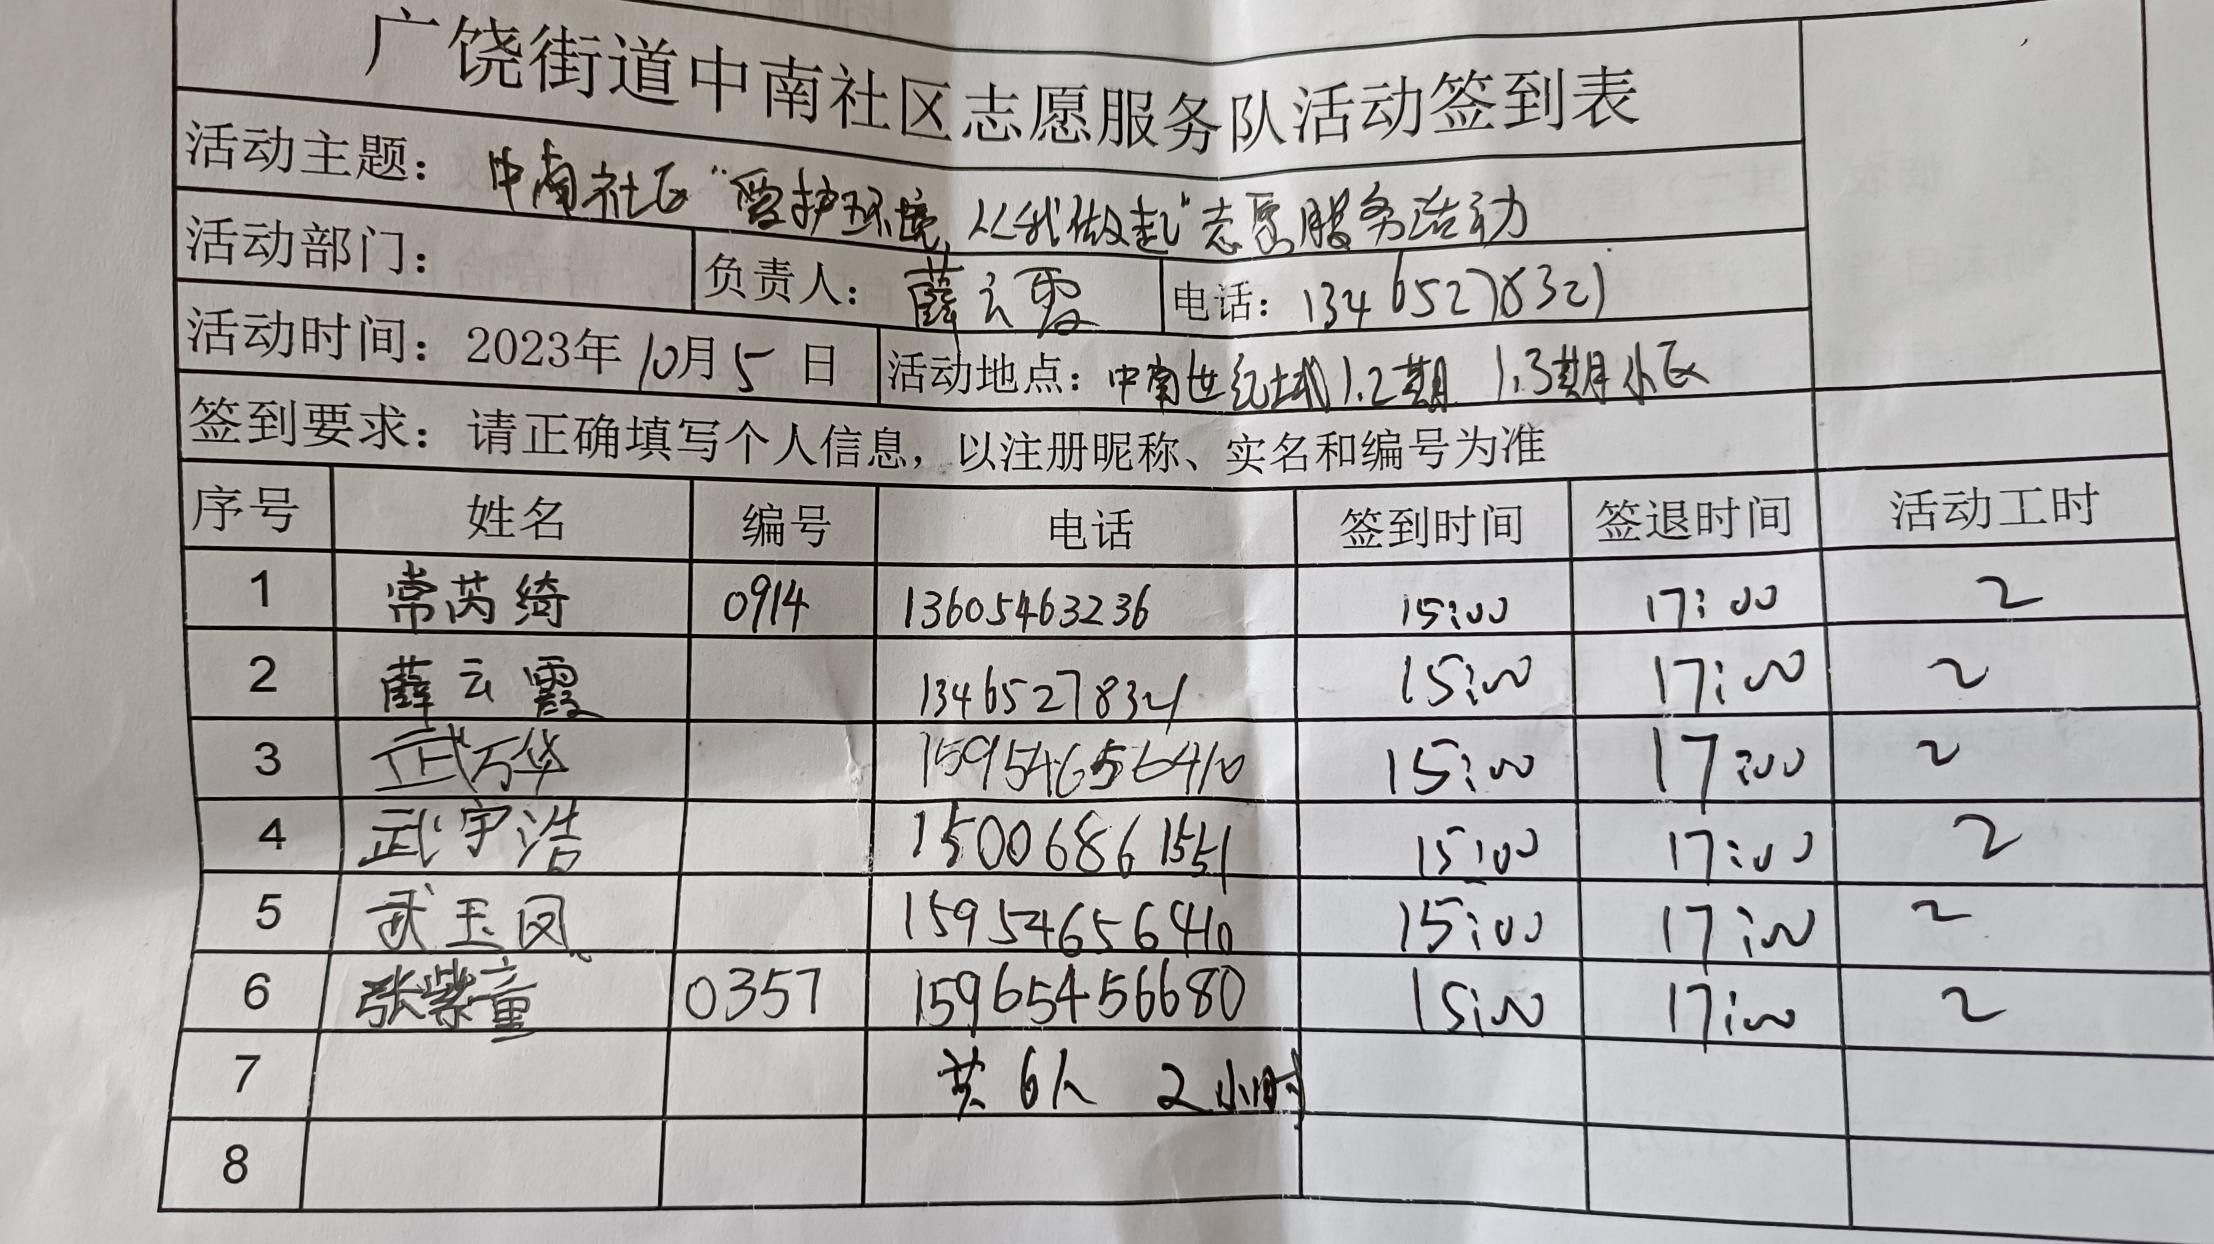 广饶街道中南社区志愿服务队活动签到表
活动主题：中南社区“爱护环境，从我做起”志愿服务活动
活动部门： 负责人：薛云霞 电话：13465278321
活动时间：2023年10月5日 活动地点：中南世纪城1.2期 1.3期小区
签到要求：请正确填写个人信息，以注册昵称、实名和编号为准
序号 姓名 编号 电话 签到时间 签退时间 活动工时
1 常芮绮 0914 13605463236 15:00 17:00 2
2 薛云霞 13465278321 15:00 17:00 2
3 武万华 15954656410 15:00 17:00 2
4 武宇浩 15006861551 15:00 17:00 2
5 武玉凤 15954656410 15:00 17:00 2
6 张紫童 0357 15965456680 15:00 17:00 2
7 共6人 2小时
8